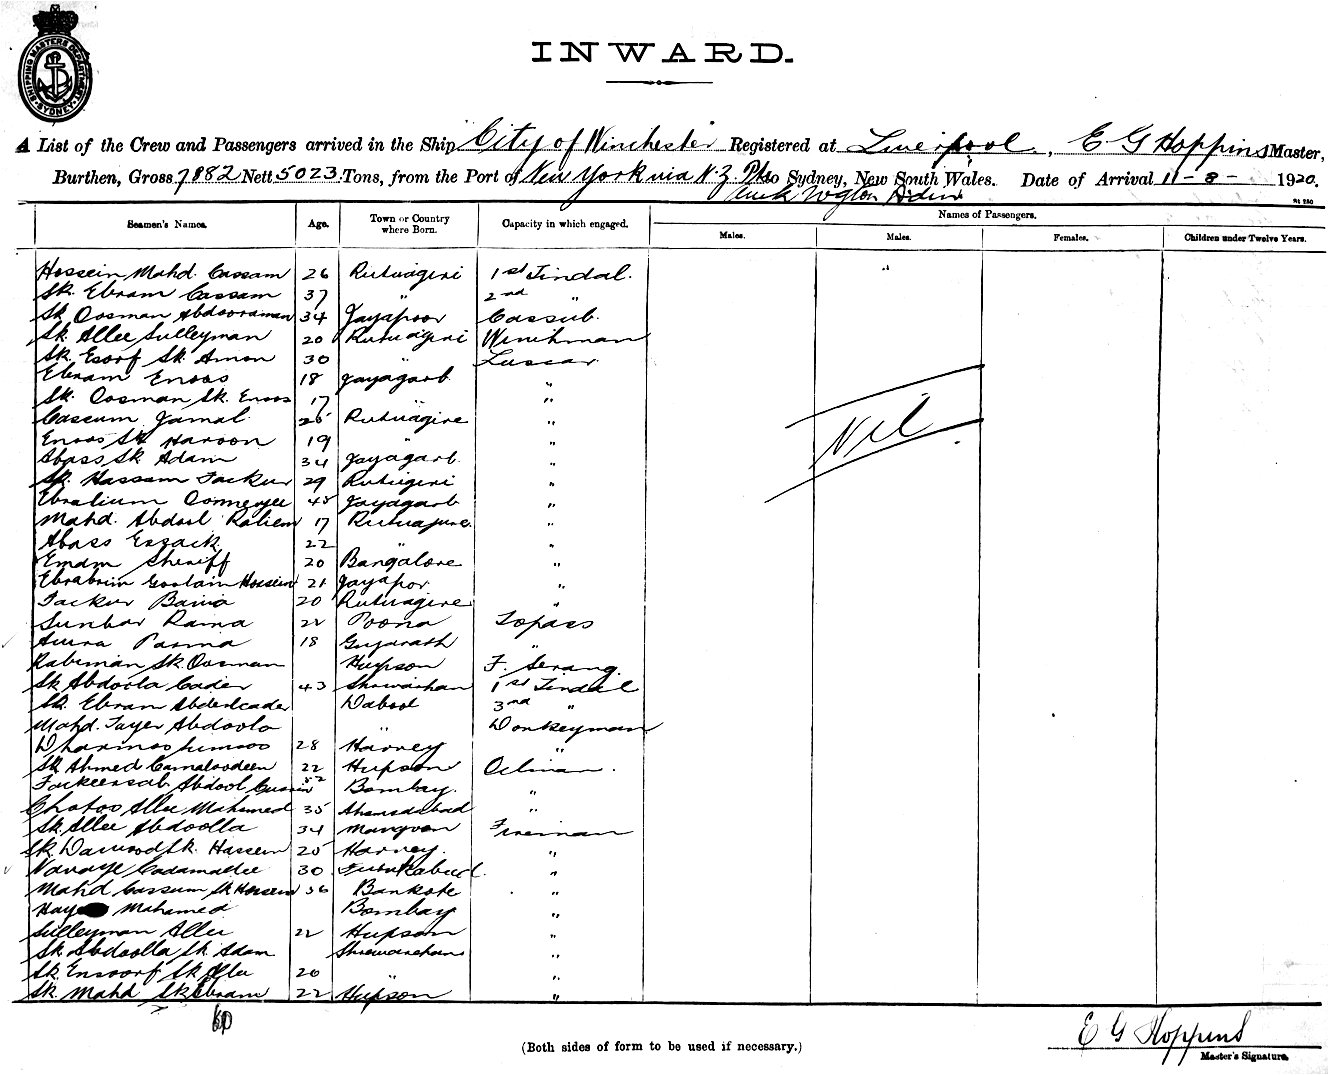 SHIPPING MASTERS DEPARTMENT SYDNEY
INWARD.
A List of the Crew and Passengers arrived in the Ship City of Winchester Registered at Liverpool, E G Hoppins Master,
Burthen, Gross 7882 Nett 5023 Tons, from the Port of New York via N.Z. Pts to Sydney, New South Wales. Date of Arrival 11-8-1920.
Names of Passengers.
Seamen's Names. Age. Town or Country where Born. Capacity in which engaged. Males. Males. Females. Children under Twelve Years.
Hossein Mahd. Cassam 26 Rutnagiri 1st Tindal.
Sk. Ebram Cassam 37 " 2nd "
Sk Oosman Abdooraman 34 Jayapoor Cassub.
Sk Allee Sulleyman 20 Rutnagiri Winchman
Sk. Esoof Sk. Amon 30 " Lascar.
Ebram Enoos 18 Jayagarb. "
Sk. Oosman Sk. Enoos 17 " "
Cassum Jamal 25 Rutnagire "
Enoos Sk Haroon 19 " "
Abass Sk Adam 34 Jayagarb. "
Sk. Hassam Fackur 29 Rutnagiri "
45 Jayagarb "
Mahd. Abdool Rahiem 17 "
Abass Eszack 22 " "
Emam Sheriff 20 Bangalore "
Ebrahim Goolam Hossein 21 Jayapor "
Fackur Bawa 20 Rutnagire "
Sunbar Rama 22 Poona Topass
18 Gujarath "
Rahiman Sk. Oosman Hupson F. Serang.
Sk Abdoola Cader 43 1st Tindal
Sk. Ebram Abdulcader Dabool 3rd "
Mahd. Tayer Abdoola " Donkeyman
28 Harney "
Sk Ahmed Camaloodeen 22 Hupson Oilman.
Fackeersab Abdool 52 Bombay. "
Chotoo Allee Mahomed 35 Ahamadabad "
Sk. Allee Abdoolla 34 Mangoon Fireman
Sk. Dawood Sk. Hassein 25 Harney. "
30 "
Mahd Cassum Sk Hossein 36 Bankote "
Mahamed Bombay "
Sulleyman Allee 22 Hupson "
Sk. Abdoolla Sk Adam "
Sk. Ensoof Sk Allee 20 " "
Sk. Mahd Sk Ebram 22 Hupson "
Nil.
(Both sides of form to be used if necessary.)
E G Hoppins
Master's Signature.